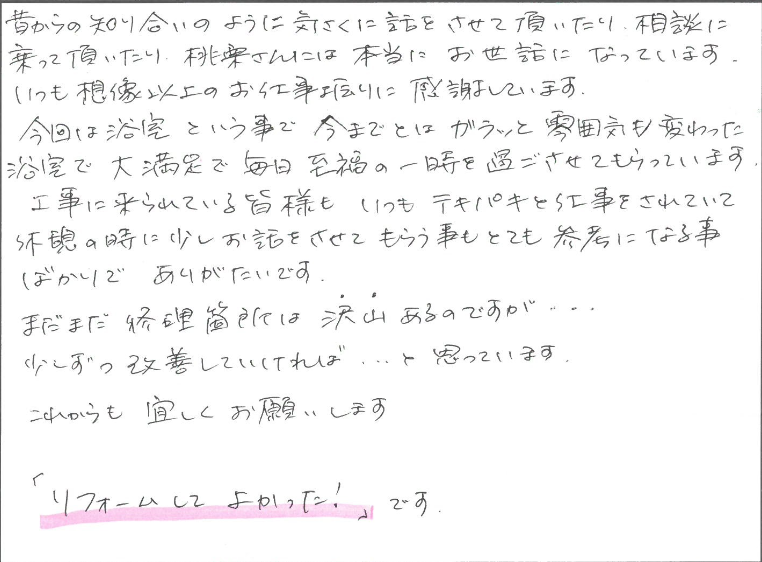 昔からの知り合いのように気さくに話をさせて頂いたり、相談に
乗って頂いたり、桃楽さんには本当にお世話になっています。
いつも想像以上のお仕事振りに感謝しています。
今回は浴室という事で今までとはガラッと雰囲気も変わった
浴室で大満足で毎日至福の一時を過ごさせてもらっています。
工事に来られている皆様もいつもテキパキと仕事をされていて
休憩の時に少しお話をさせてもらう事もとても参考になる事
ばかりでありがたいです。
まだまだ修理箇所は沢山あるのですが・・・
少しずつ改善していければ・・・と思っています。
これからも宜しくお願いします
「リフォームしてよかった!」です。